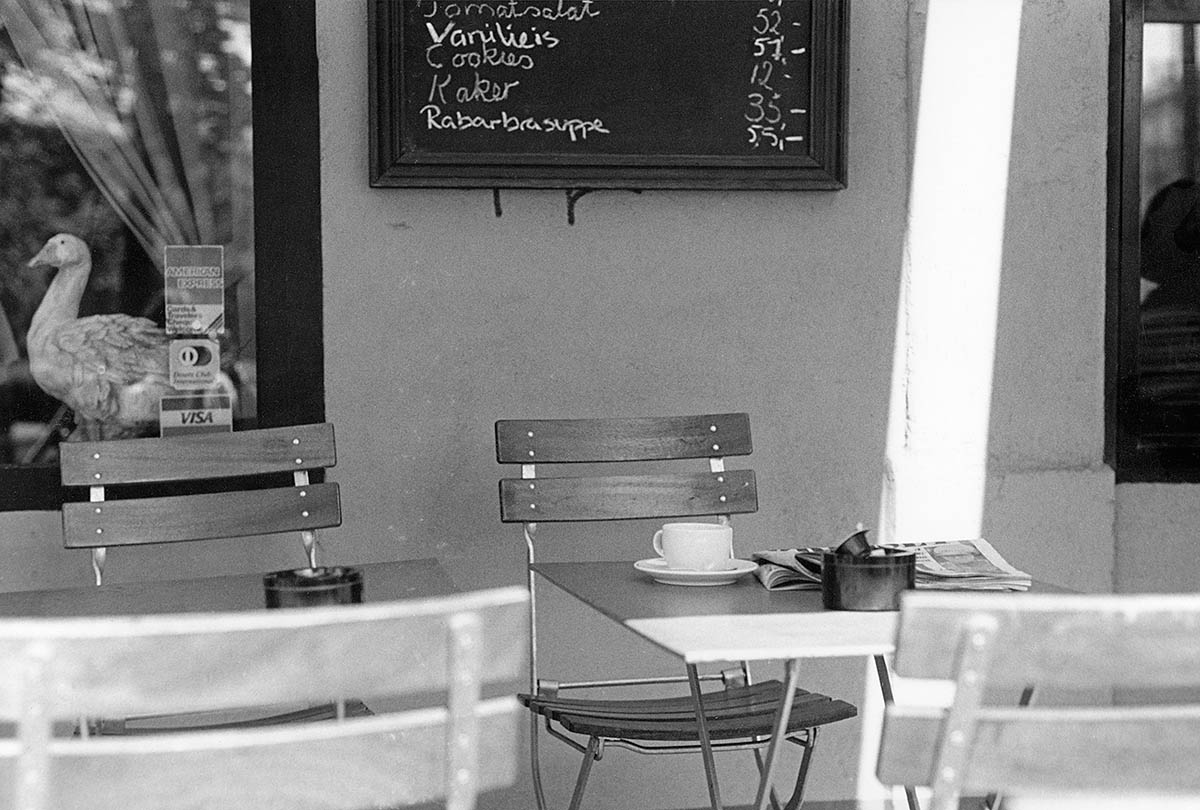 Tomatsalat 52,-
Vaniljeis 51,-
Cookies 12,-
Kaker 35,-
Rabarbrasuppe 55,-
AMERICAN
EXPRESS
Cards &
Travelers
Cheques
Welcome
Diners Club
International
VISA